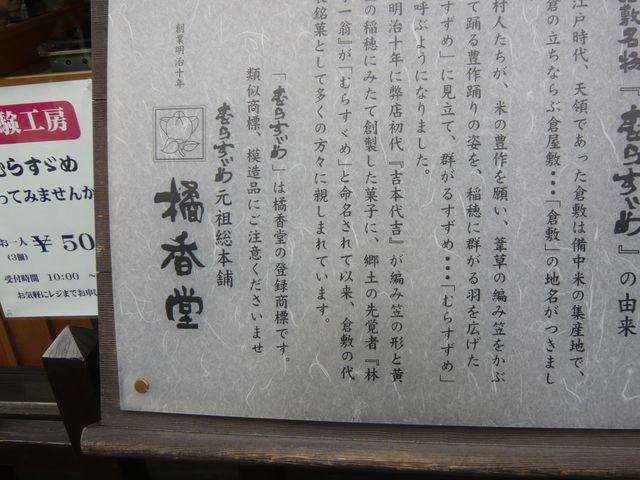 敷名物『むらすゞめ』の由来
江戸時代、天領であった倉敷は備中米の集産地で、
倉の立ちならぶ倉屋敷・・・「倉敷」の地名がつきまし
村人たちが、米の豊作を願い、葦草の編み笠をかぶ
て踊る豊作踊りの姿を、稲穂に群がる羽を広げた
すずめ」に見立て、群がるすずめ・・・「むらすずめ」
呼ぶようになりました。
明治十年に弊店初代『吉本代吉』が編み笠の形と黄
の稲穂にみたて創製した菓子に、郷土の先覚者『林
一翁』が「むらすゞめ」と命名されて以来、倉敷の代
銘菓として多くの方々に親しまれています。
「むらすゞめ」は橘香堂の登録商標です。
類似商標、模造品にご注意くださいませ
むらすゞめ元祖総本舗
創業明治十年
橘香堂
験工房
むらすゞめ
ってみませんか
お一人 ¥50
(3個)
受付時間 10:00 ~
お気軽にレジまでお申し